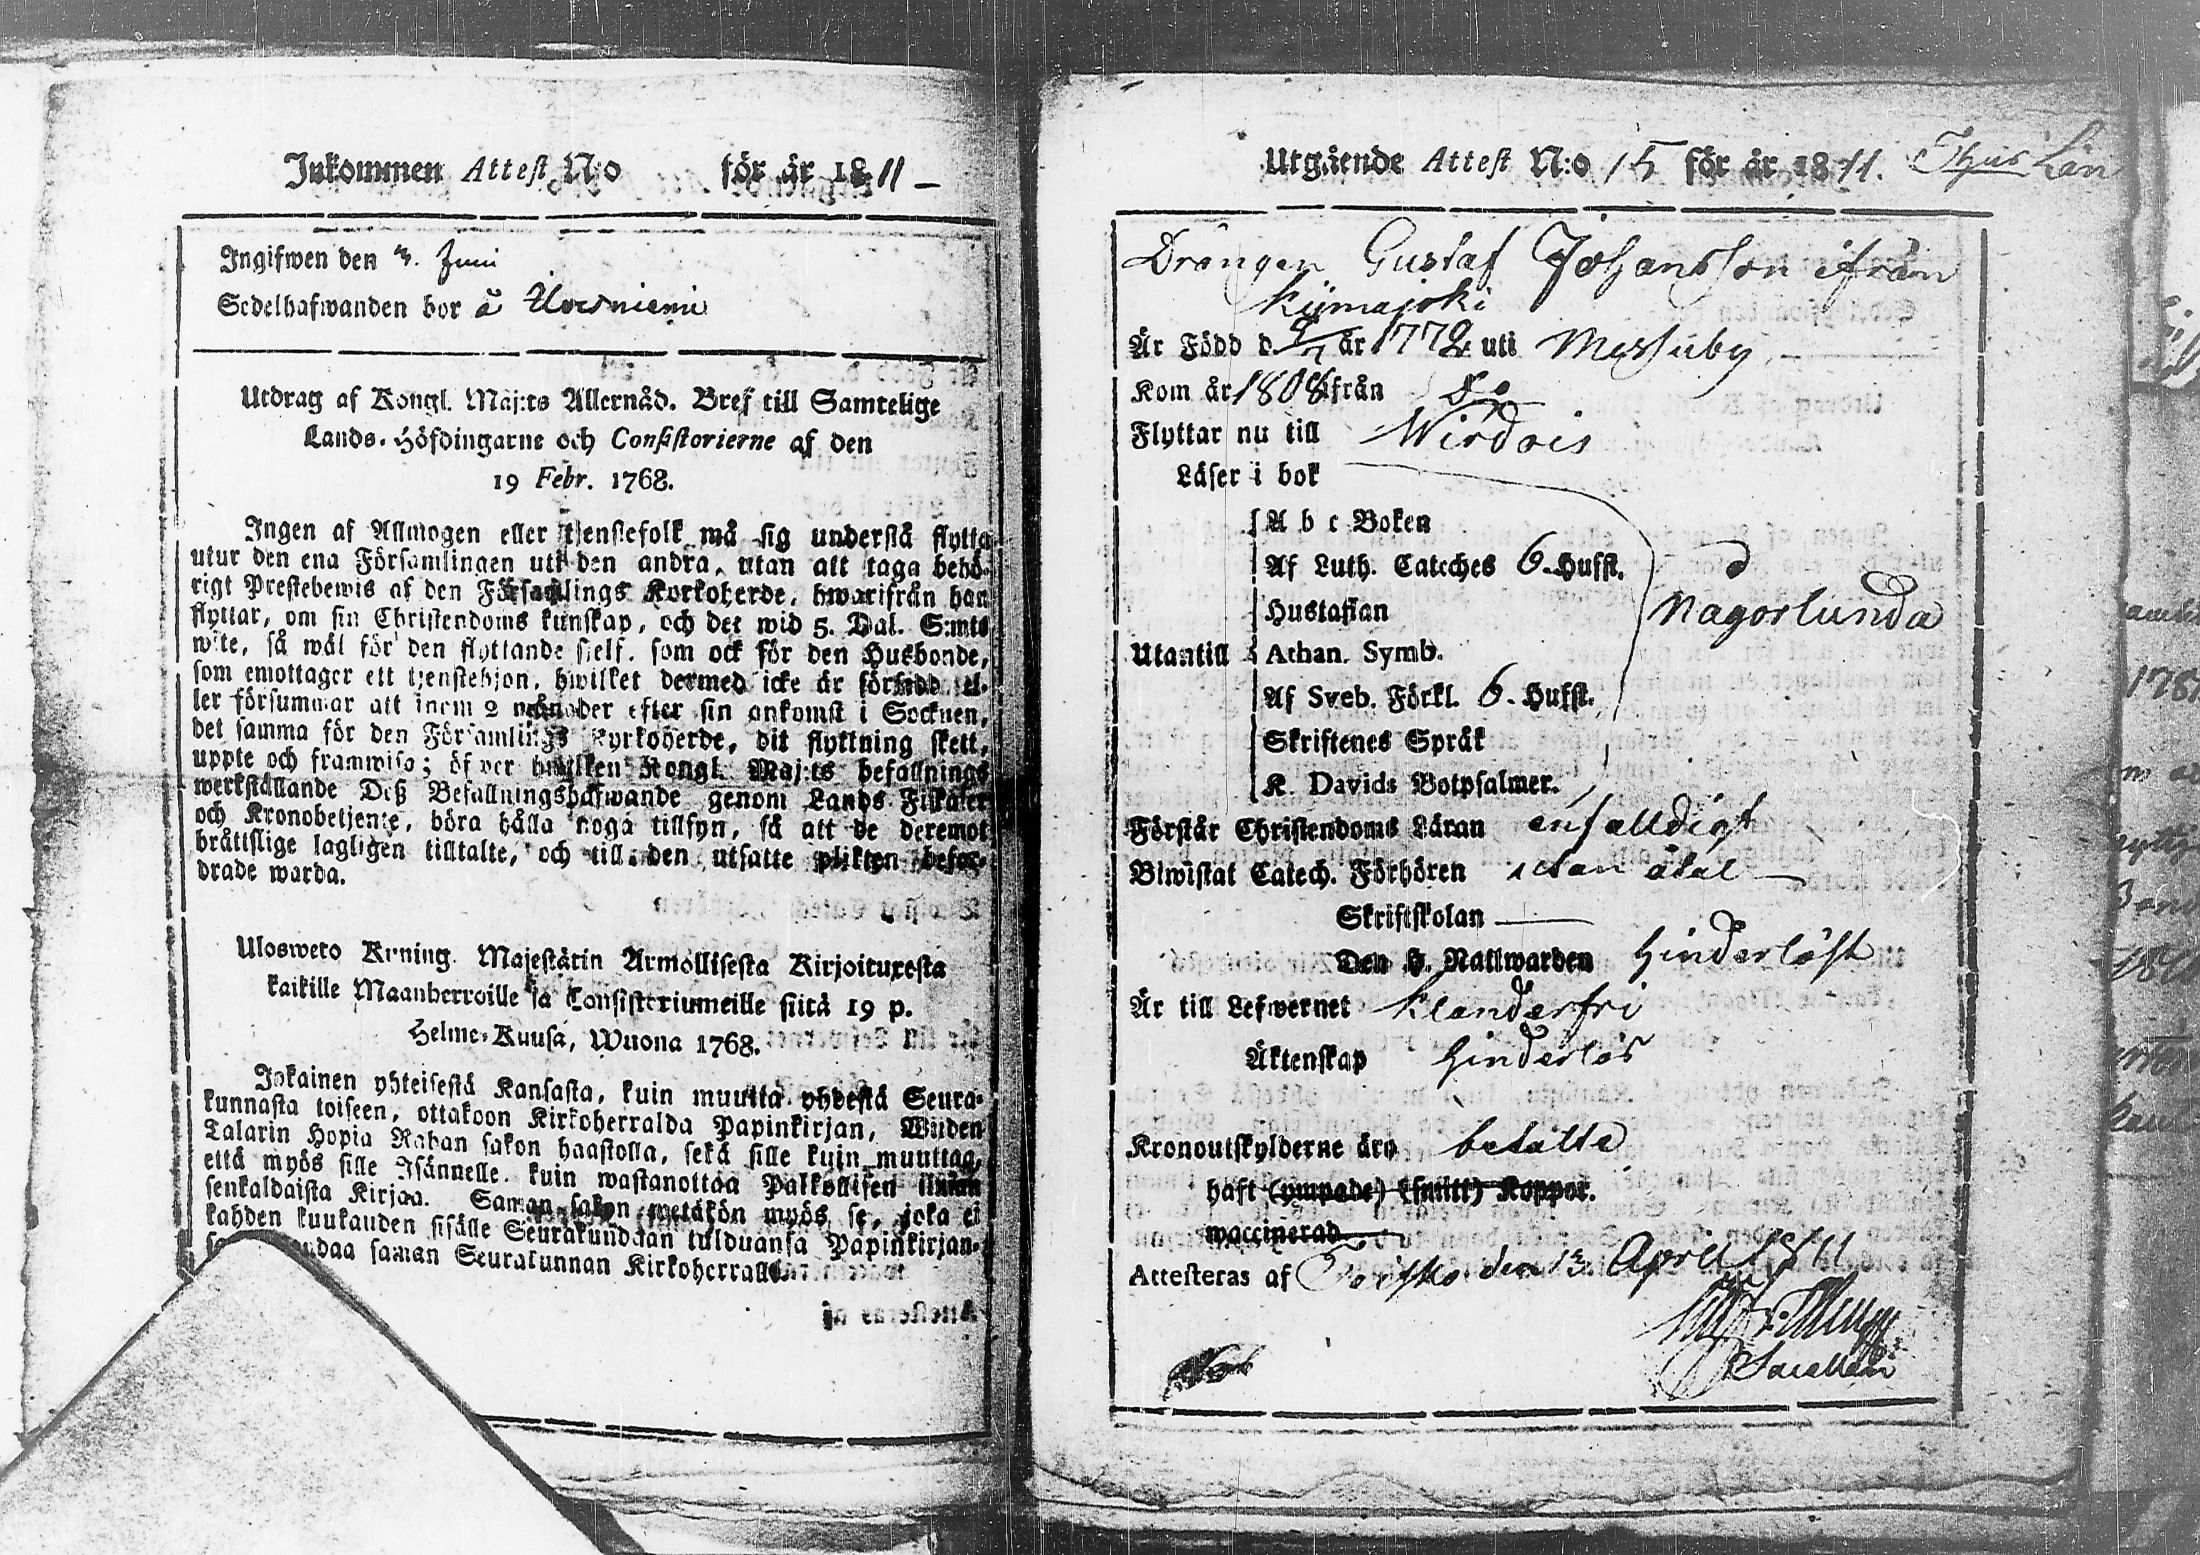 Inkommen Attest N:o för år 1811
Ingifwen den 3. Juni
Sedelhafwanden bor å
Utdrag af Kongl. Maj:ts Allernåd. Bref till Samtelige
Lands-Höfdingarne och Consistorierne af den
19 Febr. 1768.
Ingen af Allmogen eller tjenstefolk må sig understå flytta
utur den ena Församlingen uti den andra, utan att taga behö-
rigt Prestebewis af den Församlings Kyrkoherde, hwarifrån han
flyttar, om sin Christendoms kunskap, och det wid 5. Dal. S:mts
wite, så wäl för den flyttande sjelf, som ock för den Husbonde,
som emottager ett tjenstehjon, hwilket dermed icke är försedd el-
ler försummar att inom 2 månader efter sin ankomst i Socknen,
det samma för den Församlings Kyrkoherde, dit flyttning skett,
uppte och framwisa; öfwer hwilken Kongl. Maj:ts befallnings
werkställande Deß Befallningshafwande genom Lands Fiskaler
och Kronobetjente, böra hålla noga tillsyn, så att de deremot
bråttslige lagligen tilltalte, och till den utsatte plikten befor-
drade warda.
Ulosweto Kuning. Majestätin Armollisesta Kirjoituxesta
kaikille Maanherroille ja Consistoriumeille siitä 19 p.
Helme-Kuusa, Wuona 1768.
Jokainen yhteisestä Kansasta, kuin muutta yhdestä Seura-
kunnasta toiseen, ottakoon Kirkoherralda Papinkirjan, Wiiden
Talarin Hopia Rahan sakon haastolla, sekä sille kuin muuttaa,
että myös sille Isännelle, kuin wastanottaa Palkollisen ilman
senkaldaista Kirjaa. Saman sakon wetäkön myös se, joka ei
kahden kuukauden sisälle Seurakundaan tulduansa Papinkirjan-
saman Seurakunnan Kirkoherralle
Utgående Attest N:o 15 för år 1811. Län
Drängen Gustaf Johansson ifrån
Kiimajoki
Är Född d. år 1772 uti Messuby
Kom år 1808 ifrån do
Flyttar nu till Wirdois
Läser i bok
A b c Boken
Af Luth. Cateches 6. Hufst.
Hustaflan
Någorlunda
Utantill Athan. Symb.
Af Sveb. Förkl. 6. Hufst.
Skriftenes Språk
K. Davids Botpsalmer.
Förstår Christendoms Läran enfalldigt
Biwistat Catech. Förhören utan åtal
Skriftskolan
Den H. Nattwarden hinderlöst
Är till Lefwernet klanderfri
Äktenskap hinderlös
Kronoutskylderne äro betalte
haft (ympade) (smitt) Koppor.
waccinerad
Attesteras af den 13 April 1811